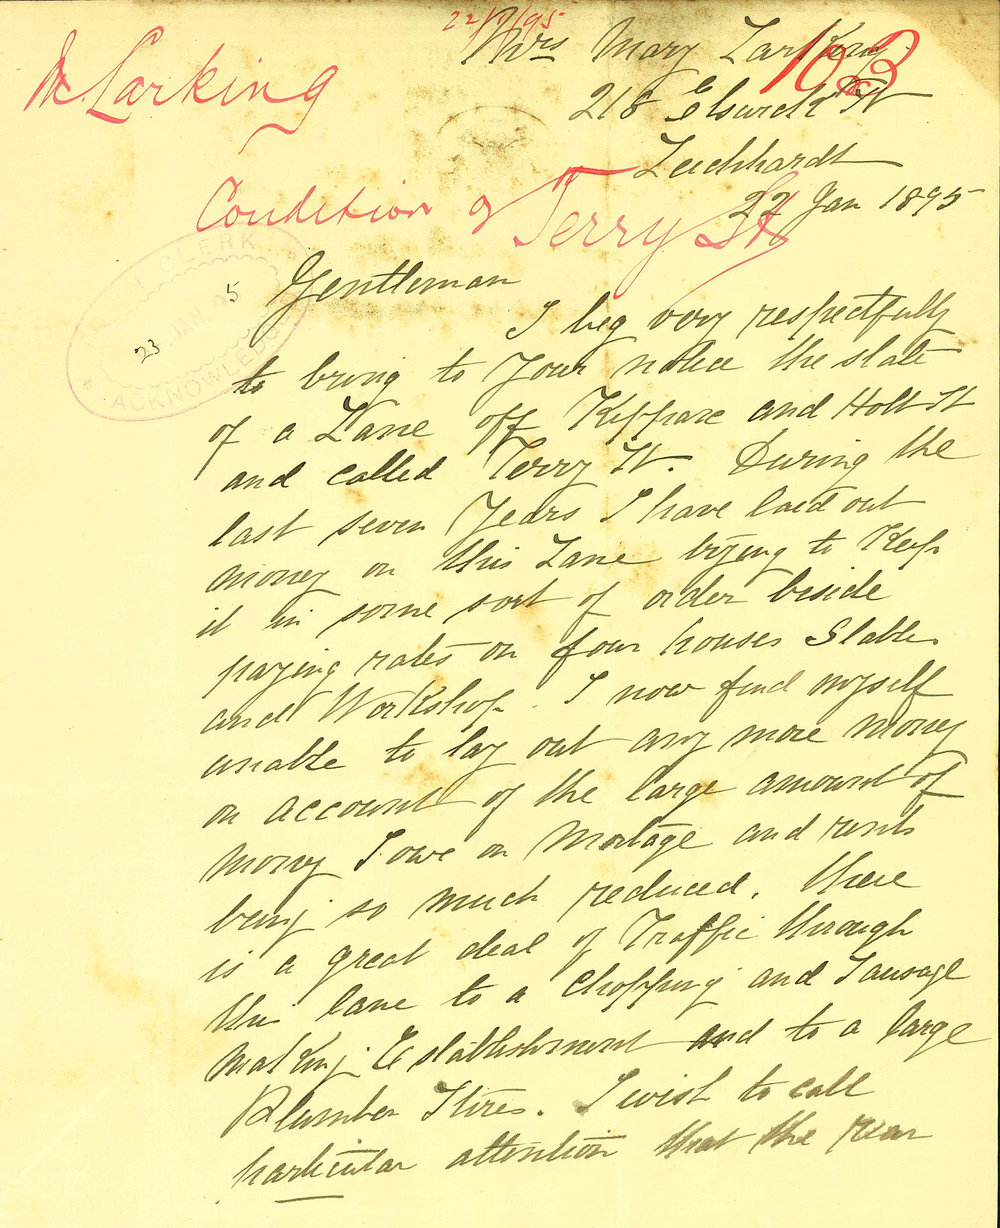 22/1/95
Mrs Mary Larking
103
Mc Larking
218 Elswick St
Leichhardt
22 Jan 1895
Condition of Terry St
CLERK
23 JAN 95
ACKNOWLEDGED
Gentleman
I beg very respectfully
to bring to Your notice the state
of a Lane off Kippax and Holt St
and called Terry St. During the
last seven Years I have laid out
money on this Lane trying to Keep
it in some sort of order beside
paying rates on four houses Stables
and Workshop. I now find myself
unable to lay out any more money
on account of the large amount of
money I owe on Mortage and rents
being so much reduced. there
is a great deal of Traffic through
this lane to a Chopping and Sausage
making Establishment and to a large
Plumber Stores. I wish to call
particular attention that the rear